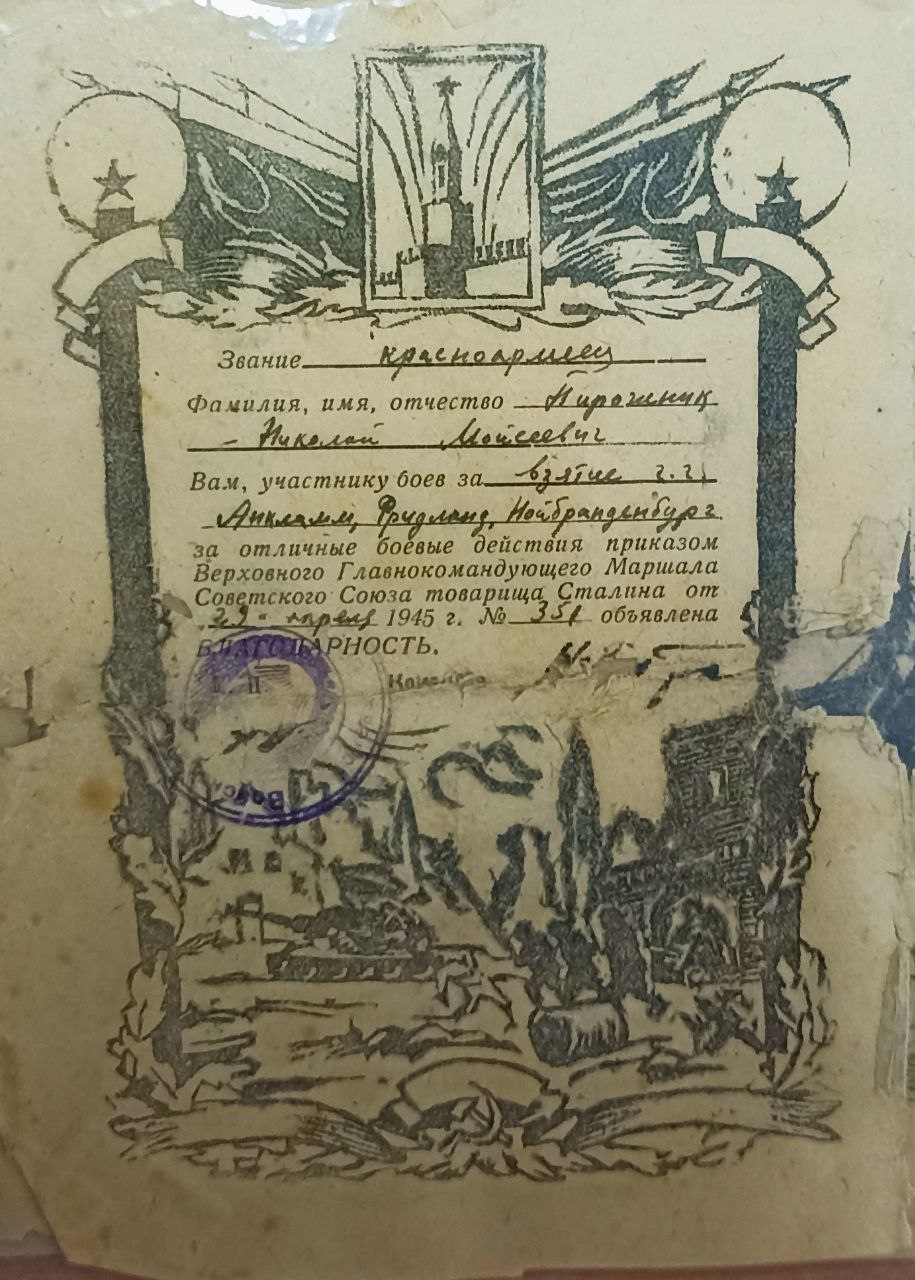 Звание красноармеец
Фамилия, имя, отчество Пирожник
- Николай Мойсеевич
Вам, участнику боев за взятие г.г.
Анкламм, Фридланд, Нойбранденбург
за отличные боевые действия приказом
Верховного Главнокомандующего Маршала
Советского Союза товарища Сталина от
"29" апреля 1945 г. № 351 объявлена
БЛАГОДАРНОСТЬ.